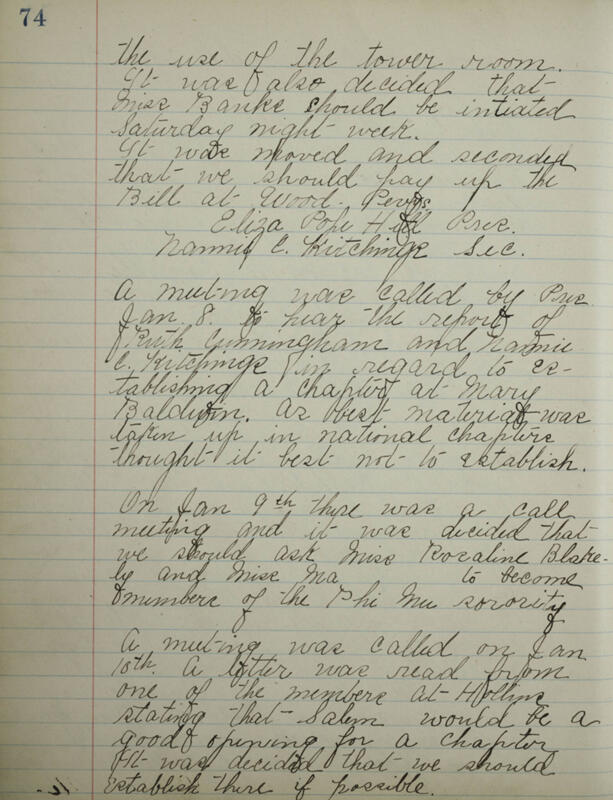 74
the use of the tower room.
It was also decided that
Miss Banks should be intiated
Saturday night week.
It was moved and seconded
that we should pay up the
Bill at Wood.
Eliza Pope Hill Pres.
Nannie C. Kitchings Sec.
A meeting was called by Pres
Jan 8. to hear the report of
Ruth Cunningham and Nannie
C. Kitchings in regard to es-
tablishing a chapter at Mary
Baldwin. As best material was
taken up in national chapters
thought it best not to establish.
On Jan 9th there was a call
meeting and it was decided that
we should ask Miss Rosaline Blake-
ly and Miss Ma to become
members of the Phi Mu sorority
A meeting was called on Jan
10th. A letter was read from
one of the members at Hollins
stating that Salem would be a
good opening for a chapter
It was decided that we should
establish there if possible.